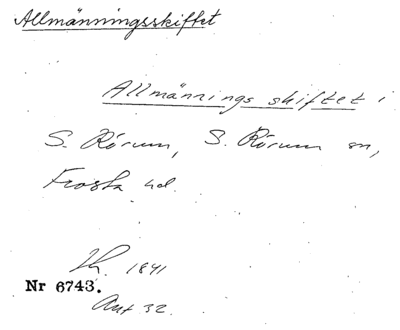 Allmänningsskiftet
Allmännings skiftet i
S. Rörum, S. Rörum sn,
Frosta hd.
Lh. 1841
Nr 6743.
Akt 32.